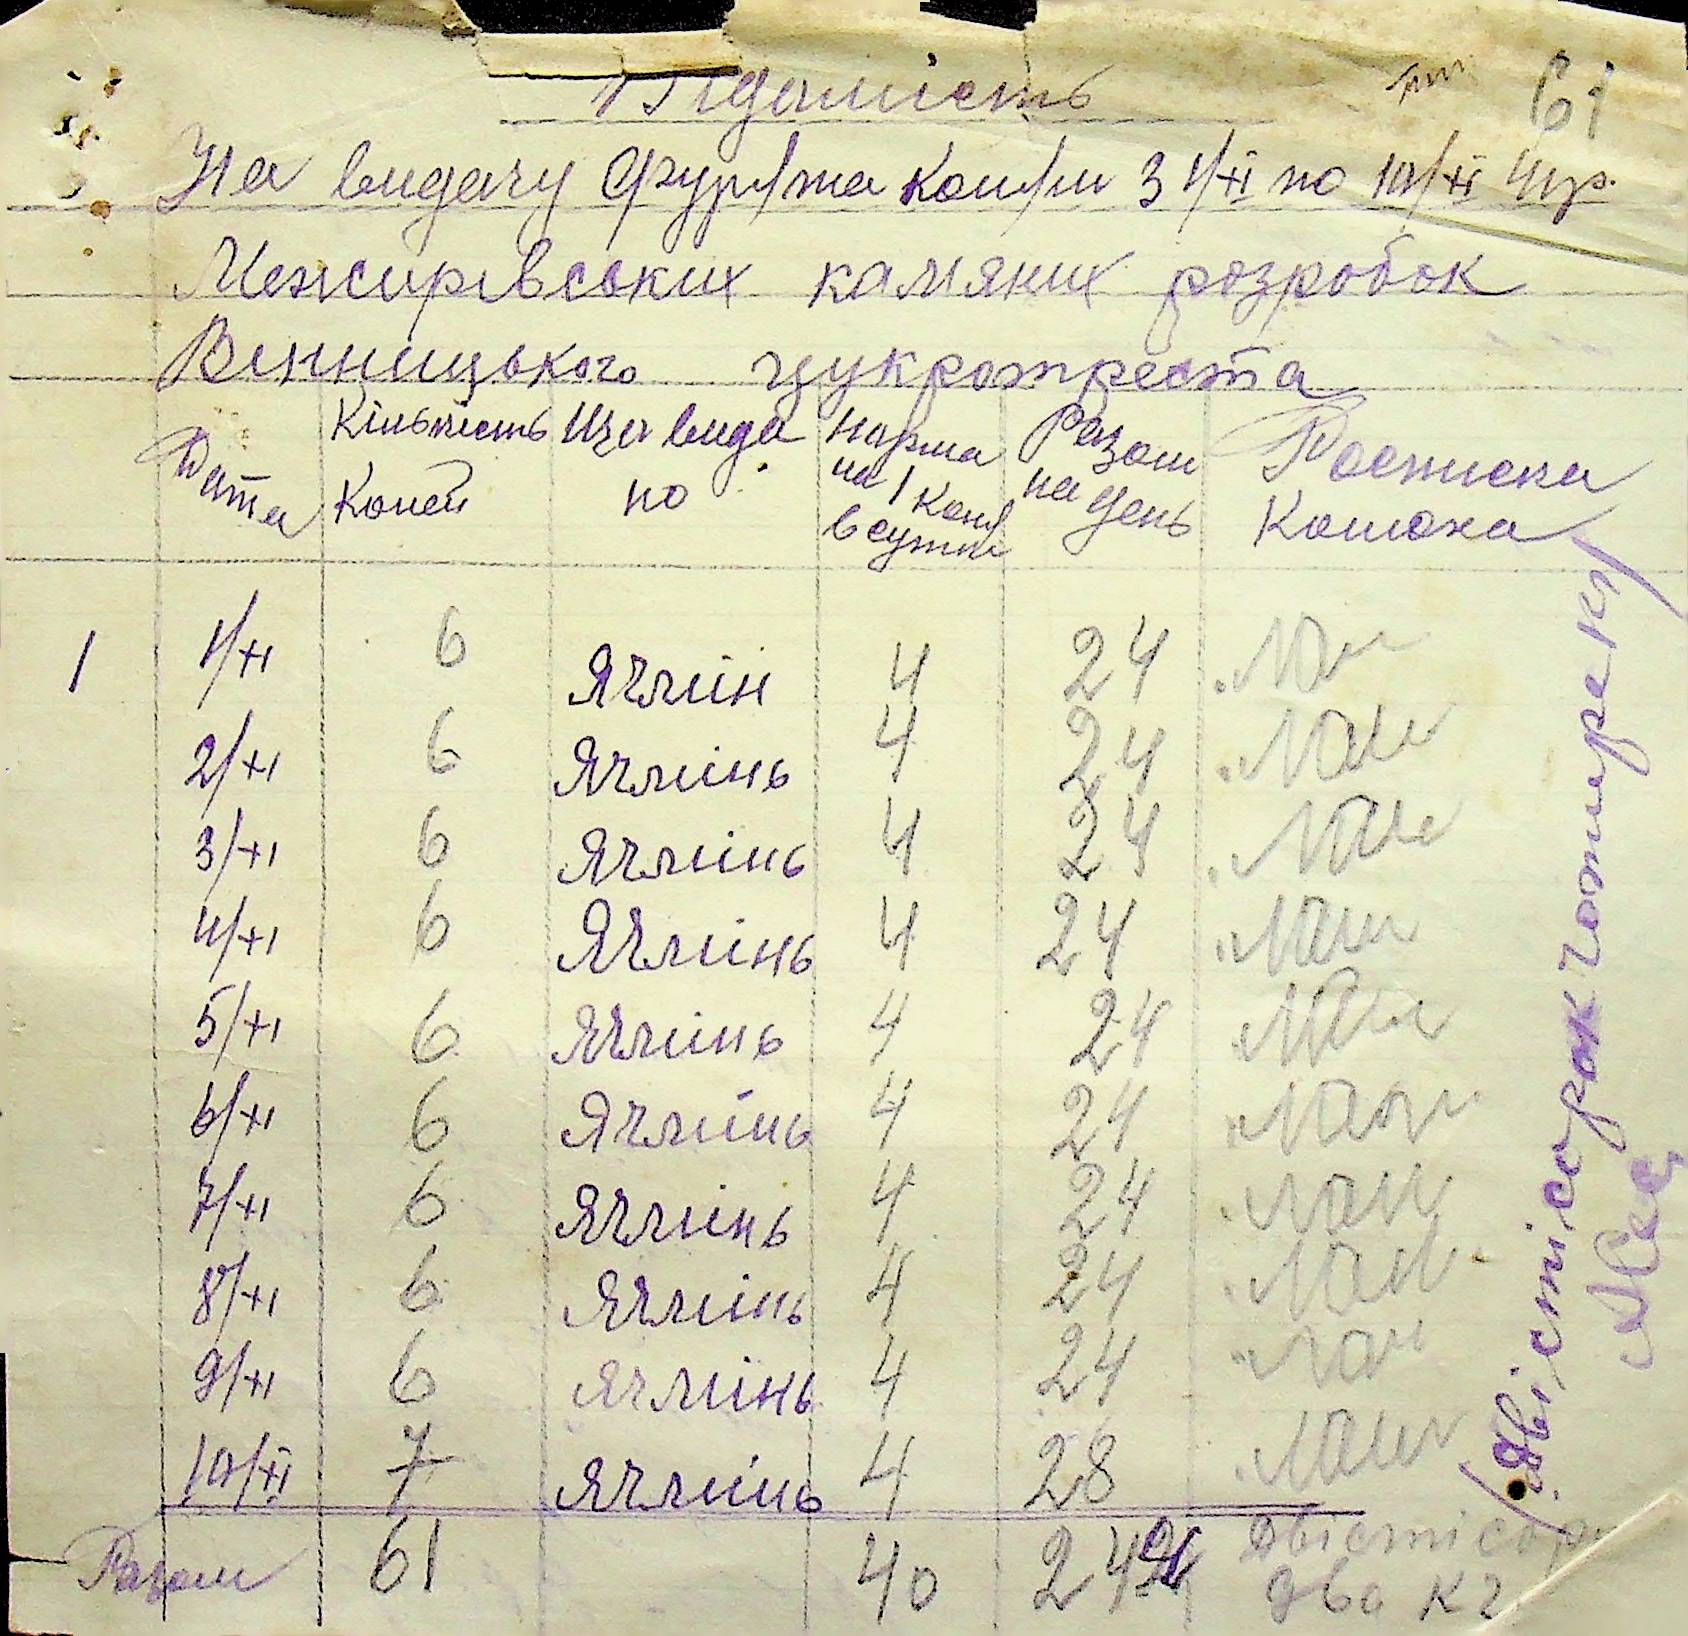 Відомість
61
На видачу фур/жа кон/ми з 1/XI по 10/XI 41р.
Межирівських камяних розробок
Вінницького цукротреста
Дата Кількість Коней Що видано Норма на 1 коня в сутки Разом на день Росписка Конюха
1 1/XI 6 Ячмін 4 24
2/XI 6 Ячмінь 4 24
3/XI 6 Ячмінь 4 24
4/XI 6 Ячмінь 4 24
5/XI 6 Ячмінь 4 24
6/XI 6 Ячмінь 4 24
7/XI 6 Ячмінь 4 24
8/XI 6 Ячмінь 4 24
9/XI 6 Ячмінь 4 24
10/XI 7 Ячмінь 4 28
Разом 61 40 244 Двісті сор
два кг
/Двісті сорок чотире кг/